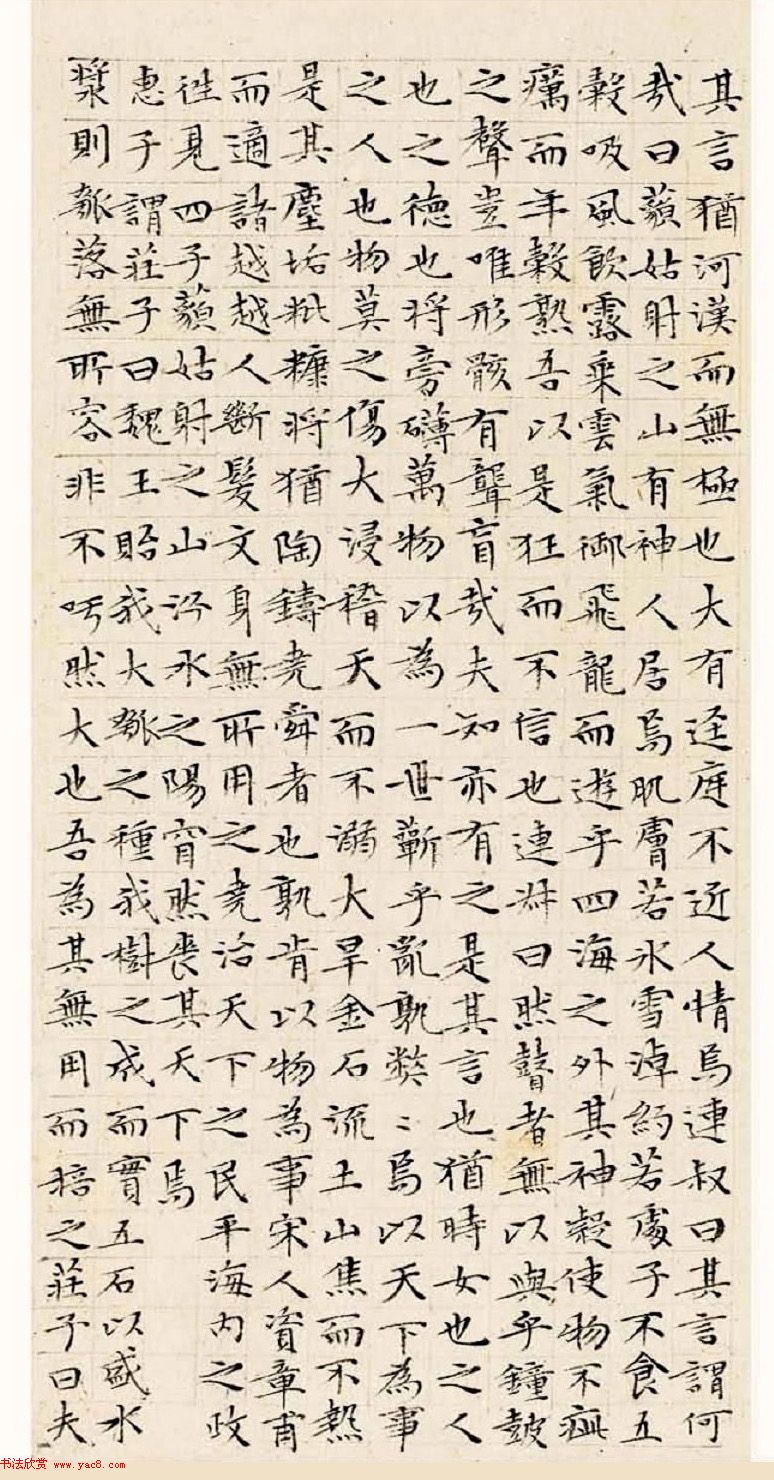 其言猶河漢而無極也大有迳庭不近人情焉連叔曰其言謂何
哉曰藐姑射之山有神人居焉肌膚若氷雪淖約若處子不食五
穀吸風飲露乗雲氣御飛龍而遊乎四海之外其神凝使物不疵
癘而年穀熟吾以是狂而不信也連叔曰然瞽者無以與乎鐘鼓
之聲豈唯形骸有聾盲哉夫知亦有之是其言也猶時女也之人
也之德也将旁礴萬物以為一世蘄乎亂孰弊〻焉以天下為事
之人也物莫之傷大浸稽天而不溺大旱金石流土山焦而不熱
是其塵垢粃糠将猶陶鑄堯舜者也孰肯以物為事宋人資章甫
而適諸越越人斷髮文身無所用之堯治天下之民平海内之政
往見四子藐姑射之山汾水之陽窅然喪其天下焉
惠子謂莊子曰魏王貽我大瓠之種我樹之成而實五石以盛水
漿則瓠落無所容非不呺然大也吾為其無用而掊之莊子曰夫
书法欣赏 www.yac8.com